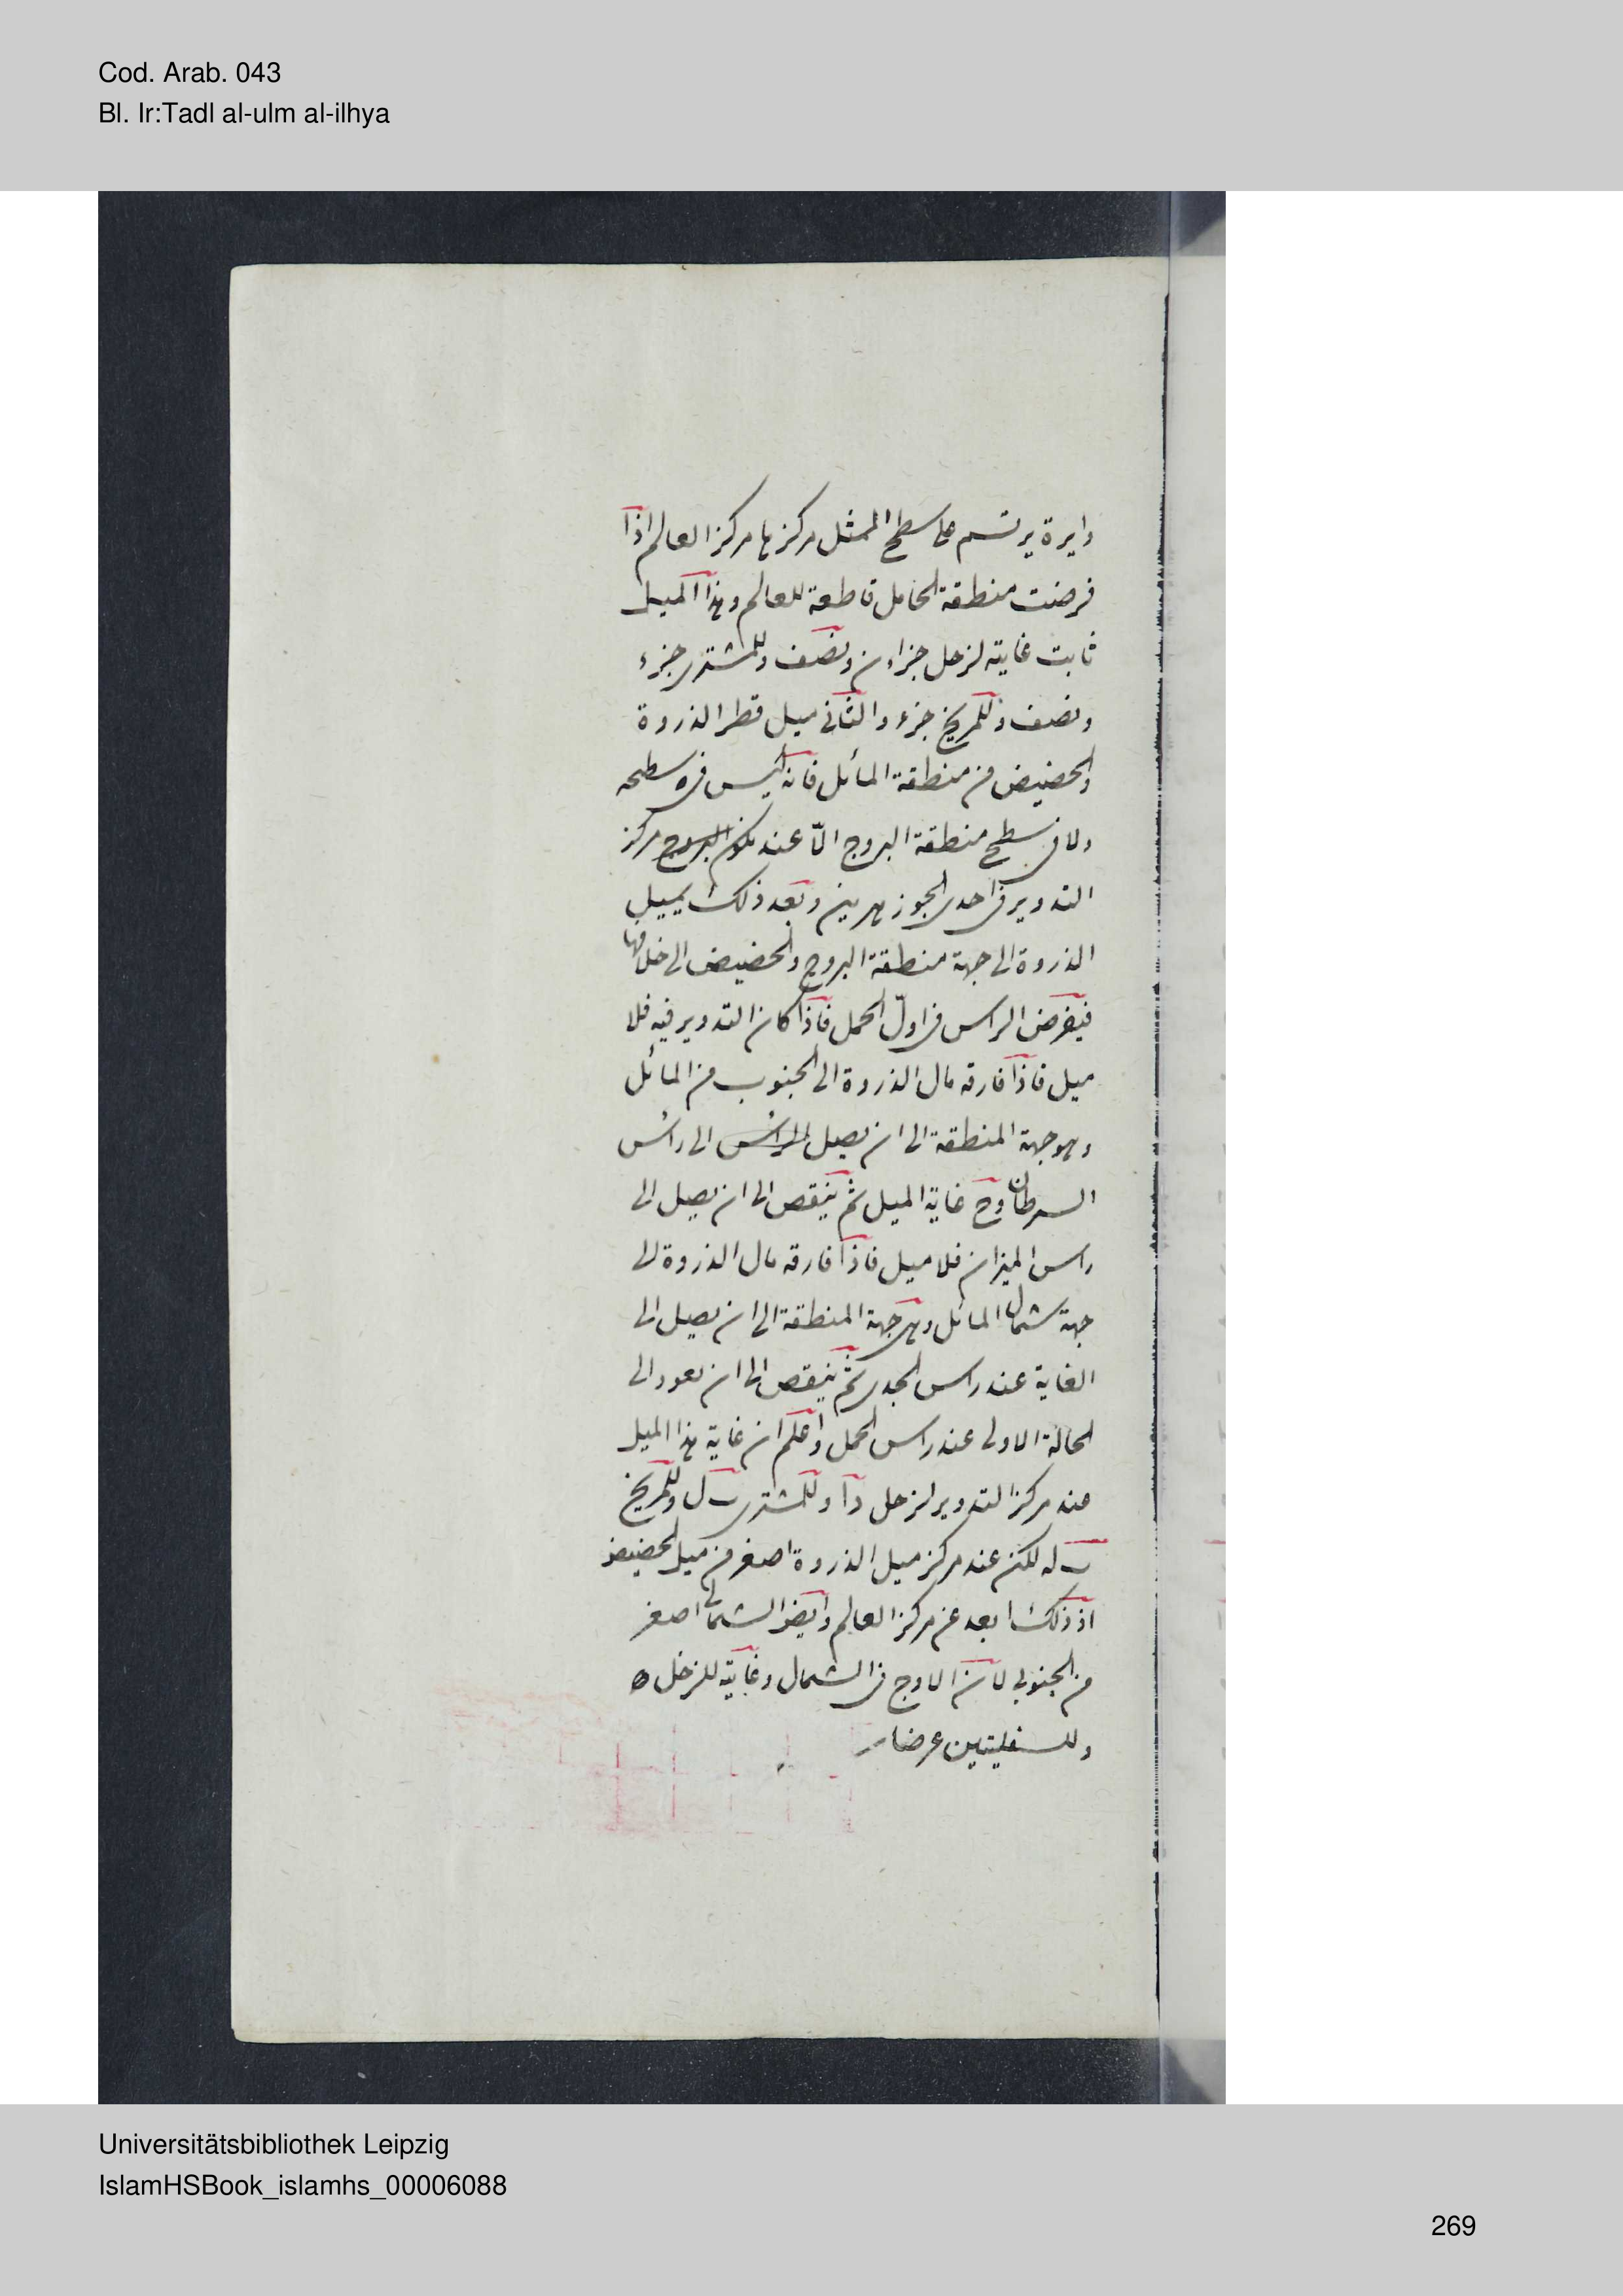 Cod. Arab. 043
Bl. Ir:Tadl al-ulm al-ilhya
دايرة يرتسم على سطح الممثل مركزها مركز العالم اذا
فرضت منطقة الحامل قاطعة للعالم وهذا الميل
ثابت غايته لزحل جزاءن ونصف وللمشترى جزء
ونصف وللمريخ جزء والثانى ميل قطر الذروة
والحضيض من منطقة المائل فانه ليس فى سطحه
ولا فى سطح منطقة البروج الّا عند كون البروج مركز
التدوير فى احدى الجوزهرين وبعد ذلك يميل
الذروة الى جهة منطقة البروج والحضيض الى خلافها
فيفرض الراس فى اول الحمل فاذا كان التدوير فيه فلا
ميل فاذا فارقه مال الذروة الى الجنوب من المائل
وهو جهة المنطقة الى ان يصل الرأس الى رأس
السرطان وح غاية الميل ثم ينقص الى ان يصل الى
راس الميزان فلا ميل فاذا فارقه مال الذروة الى
جهة شمال المائل وهى جهة المنطقة الى ان يصل الى
الغاية عند راس الجدى ثم ينقص الى ان يعود الى
الحالة الاولى عند راس الحمل واعلم ان غاية هذا الميل
عند مركز التدوير لزحل وللمشترى وللمريخ
لكن عند مركز ميل الذروة اصغر من ميل الحضيض
اذ ذلك ابعد عن مركز العالم وايضا الشمالى اصغر
من الجنوبى لان الاوج فى الشمال وغايته للزحل
وللسفليتين عرضان
Universitätsbibliothek Leipzig
IslamHSBook_islamhs_00006088
269